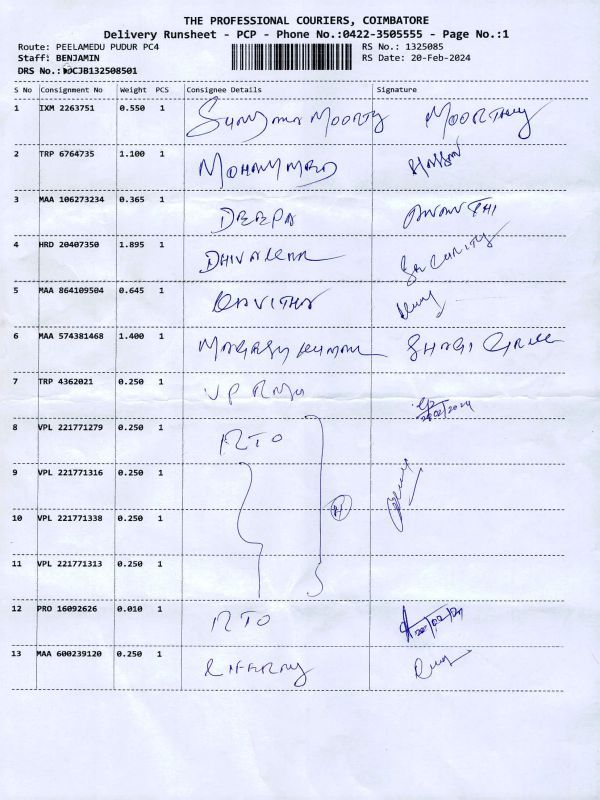 THE PROFESSIONAL COURIERS, COIMBATORE
Delivery Runsheet - PCP - Phone No.:0422-3505555 - Page No.:1
Route: PEELAMEDU PUDUR PC4 RS No.: 1325085
Staff: BENJAMIN RS Date: 20-Feb-2024
DRS No.: DCJB132508501
S No Consignment No Weight PCS Consignee Details Signature
1 IXM 2263751 0.550 1 MOORTHY
2 TRP 6764735 1.100 1
3 MAA 106273234 0.365 1 DEEPA
4 HRD 20407350 1.895 1 SECURITY
5 MAA 864109504 0.645 1 KAVITHA
6 MAA 574381468 1.400 1
7 TRP 4362021 0.250 1 VP
8 VPL 221771279 0.250 1 RTO
9 VPL 221771316 0.250 1
10 VPL 221771338 0.250 1
11 VPL 221771313 0.250 1
12 PRO 16092626 0.010 1 RTO
13 MAA 600239120 0.250 1